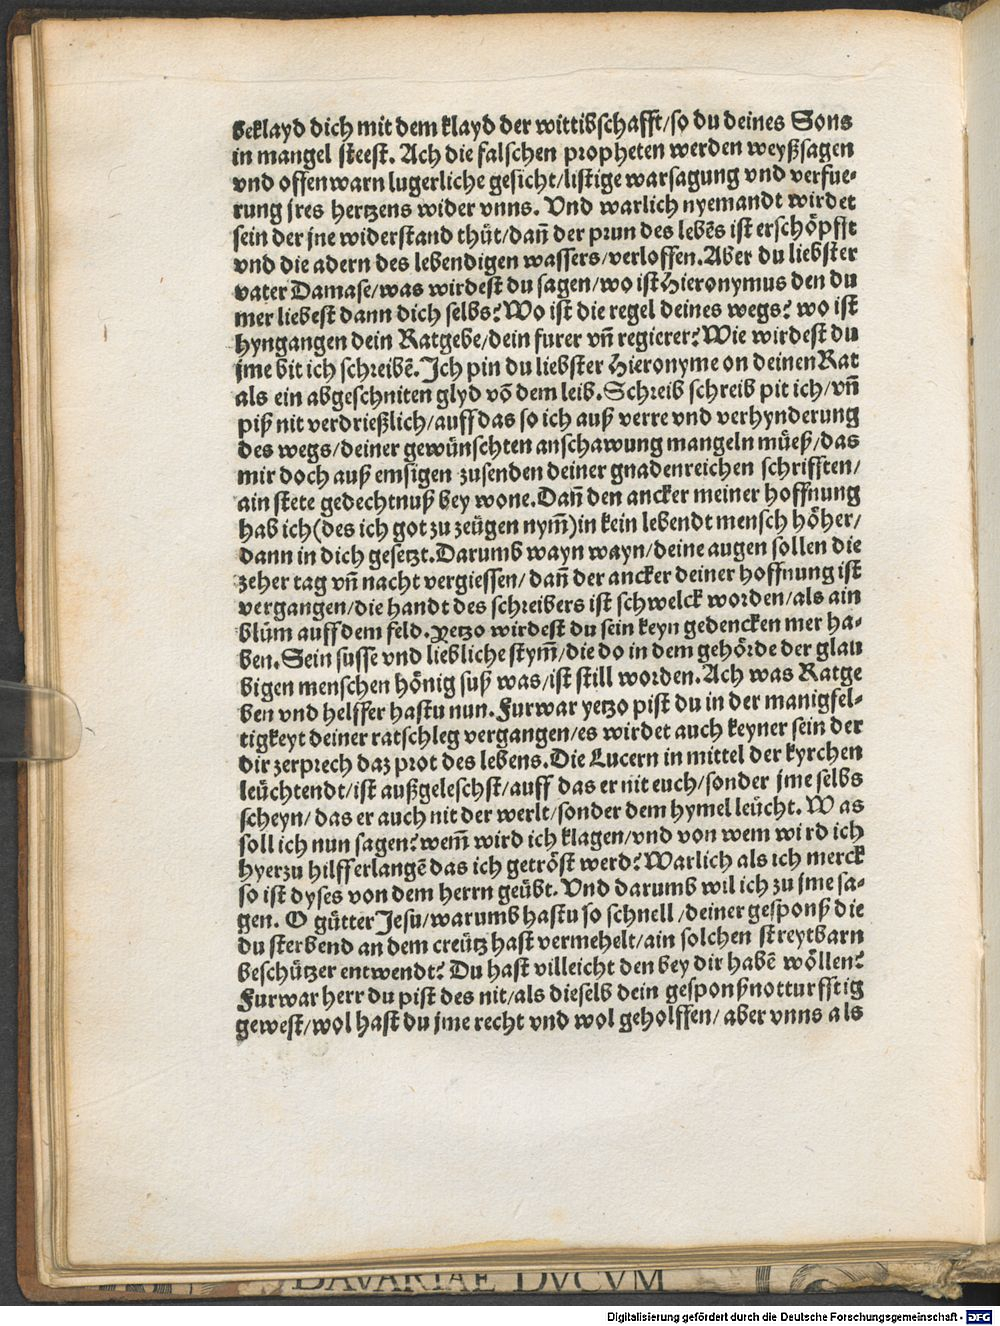 beklayd dich mit dem klayd der wittibschafft/so du deines Sons
in mangel steest. Ach die falschen propheten werden weyßsagen
vnd offenwarn lugerliche gesicht/listige warsagung vnd verfue-
rung jres hertzens wider vnns. Vnd warlich nyemandt wirdet
sein der jne widerstand thüt/dañ der prun des lebēs ist erschöpfft
vnd die adern des lebendigen wassers/verloffen. Aber du liebster
vater Damase/was wirdest du sagen/wo ist Hieronymus den du
mer liebest dann dich selbs? Wo ist die regel deines wegs? wo ist
hyngangen dein Ratgebe/dein furer vñ regierer? Wie wirdest du
jme bit ich schreibē. Ich pin du liebster Hieronyme on deinen Rat
als ein abgeschniten glyd võ dem leib. Schreib schreib pit ich/vñ
piß nit verdrießlich/auff das so ich auß verre vnd verhynderung
des wegs/deiner gewünschten anschawung mangeln müeß/das
mir doch auß emsigen zusenden deiner gnadenreichen schrifften/
ain stete gedechtnuß bey wone. Dañ den ancker meiner hoffnung
hab ich(des ich got zu zeügen nym̃)in kein lebendt mensch höher/
dann in dich gesetzt. Darumb wayn wayn/deine augen sollen die
zeher tag vñ nacht vergiessen/dañ der ancker deiner hoffnung ist
vergangen/die handt des schreibers ist schwelck worden/als ain
blüm auff dem feld. Yetzo wirdest du sein keyn gedencken mer ha-
ben. Sein susse vnd liebliche stym̃/die do in dem gehörde der glau
bigen menschen hönig suß was/ist still worden. Ach was Ratge
ben vnd helffer hastu nun. Furwar yetzo pist du in der manigfel-
tigkeyt deiner ratschleg vergangen/es wirdet auch keyner sein der
dir zerprech daz prot des lebens. Die Lucern in mittel der kyrchen
leüchtendt/ist außgeleschst/auff das er nit euch/sonder jme selbs
scheyn/das er auch nit der werlt/sonder dem hymel leücht. Was
soll ich nun sagen? wem̃ wird ich klagen/vnd von wem wird ich
hyerzu hilff erlangē das ich getröst werd? Warlich als ich merck
so ist dyses von dem herrn geübt. Vnd darumb wil ich zu jme sa-
gen. O gütter Jesu/warumb hastu so schnell/deiner gesponß die
du sterbend an dem creütz hast vermehelt/ain solchen streytbarn
beschützer entwendt? Du hast villeicht den bey dir habē wöllen?
Furwar herr du pist des nit/als dieselb dein gesponß notturfftig
gewest/wol hast du jme recht vnd wol geholffen/aber vnns als
BAVARIAE DVCVM
Digitalisierung gefördert durch die Deutsche Forschungsgemeinschaft - DFG